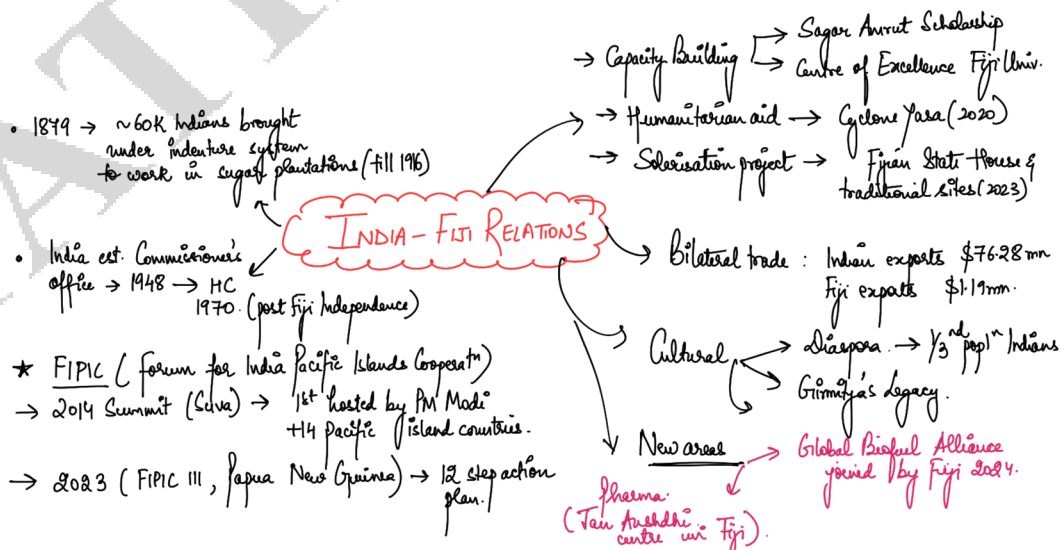 INDIA – FIJI RELATIONS
• 1879 → ~60K Indians brought
under indenture system
to work in sugar plantations (till 1916)
• India est. Commissioner's
office → 1948 → HC
1970. (post Fiji Independence)
★ FIPIC ( Forum for India Pacific Islands Cooperatn)
→ 2014 Summit (Suva) → 1st hosted by PM Modi
+14 Pacific island countries.
→ 2023 ( FIPIC III, Papua New Guinea) → 12 step action
plan.
→ Capacity Building → Sagar Amrut Scholarship
→ Centre of Excellence Fiji Univ.
→ Humanitarian aid → Cyclone Yasa (2020)
→ Solarisation project → Fijian State House &
traditional sites (2023)
Bilateral trade : Indian exports $76.28 mn
Fiji exports $1.19 mn.
Cultural → Diaspora. → 1/3nd popln Indians
Girmitya's Legacy.
New areas → Global Biofuel Alliance
joined by Fiji 2024.
Pharma.
(Jan Aushdhi
centre in Fiji).
ATI